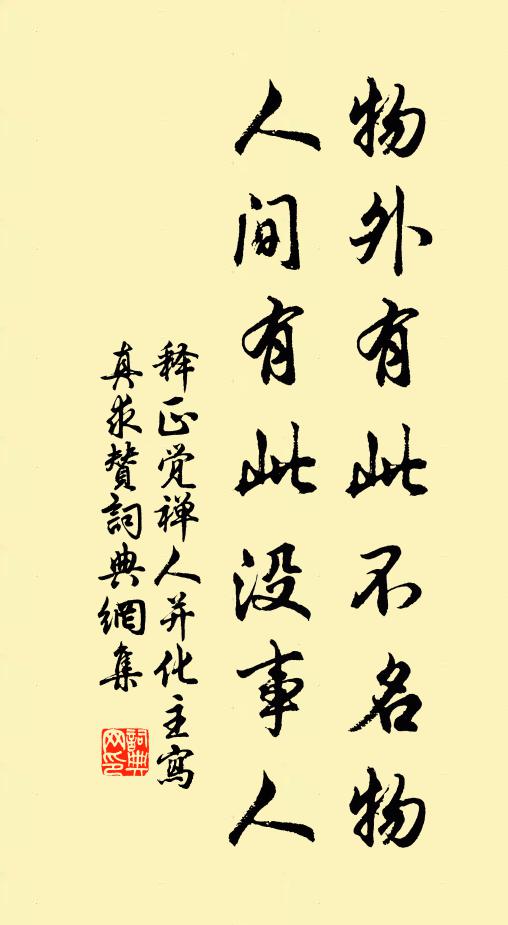 物外有此不名物
人间有此没事人
释正觉禅人并化主寫
真求贊詞典網集
詞典网印